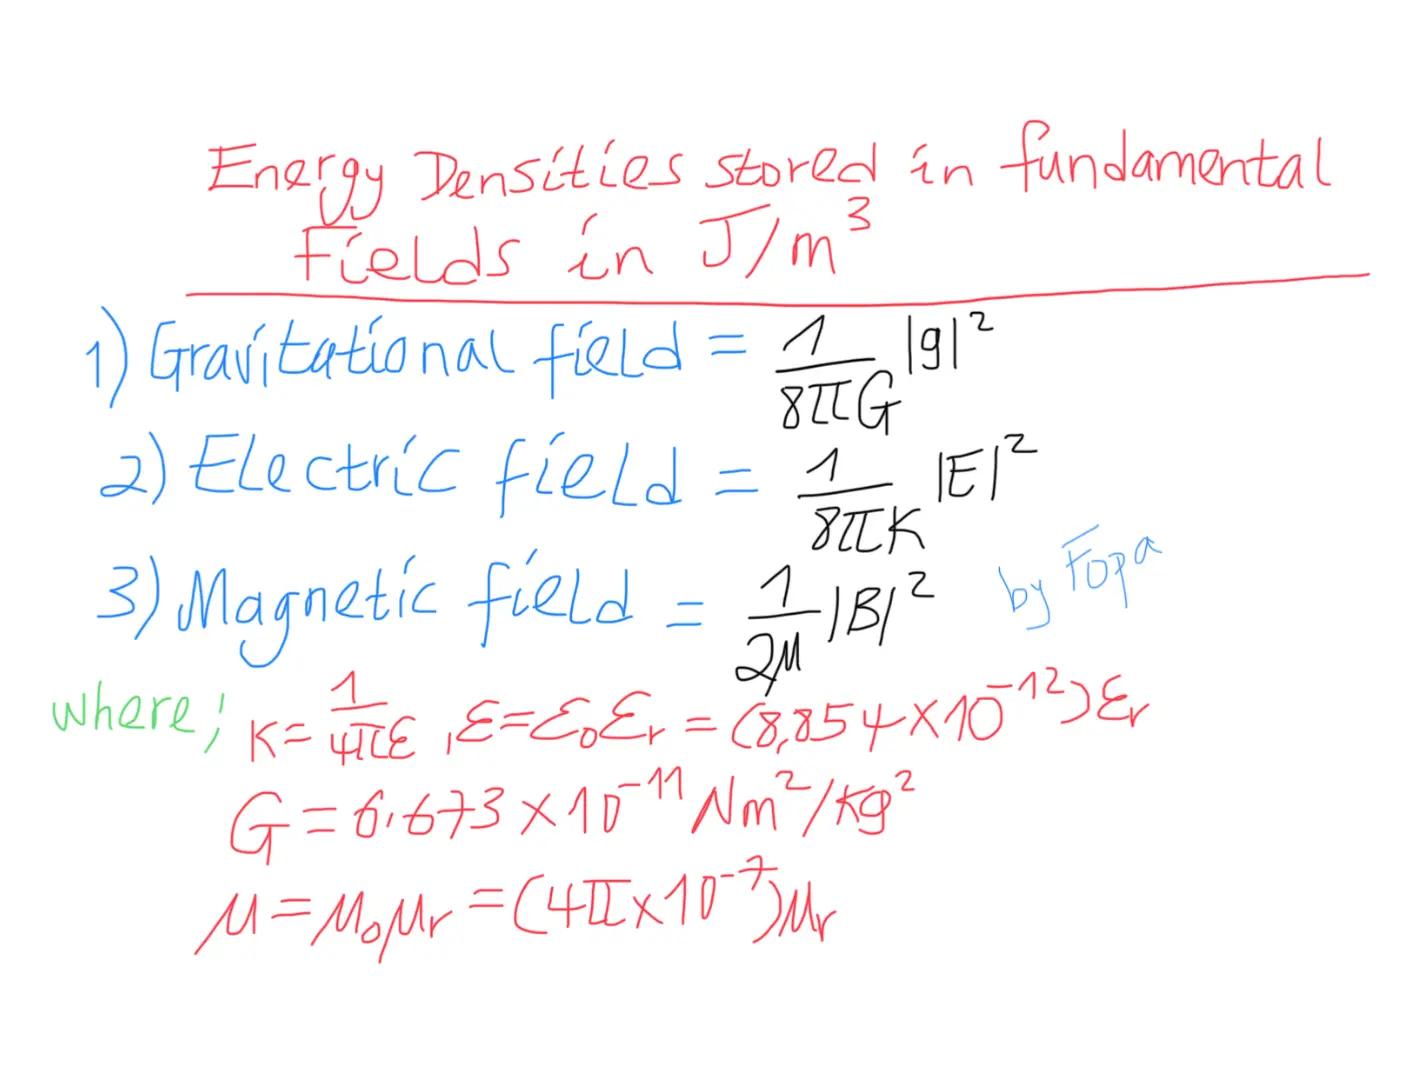 Energy Densities stored in fundamental
Fields in J/m³
1) Gravitational field = 1/8πG |g|²
2) Electric field = 1/8πK |E|²
3) Magnetic field = 1/2μ |B|²
by Fopa
where; K = 1/4πε , ε = ε₀εᵣ = (8,854 × 10⁻¹²) εᵣ
G = 6.673 × 10⁻¹¹ Nm²/Kg²
μ = μ₀μᵣ = (4π × 10⁻⁷) μᵣ